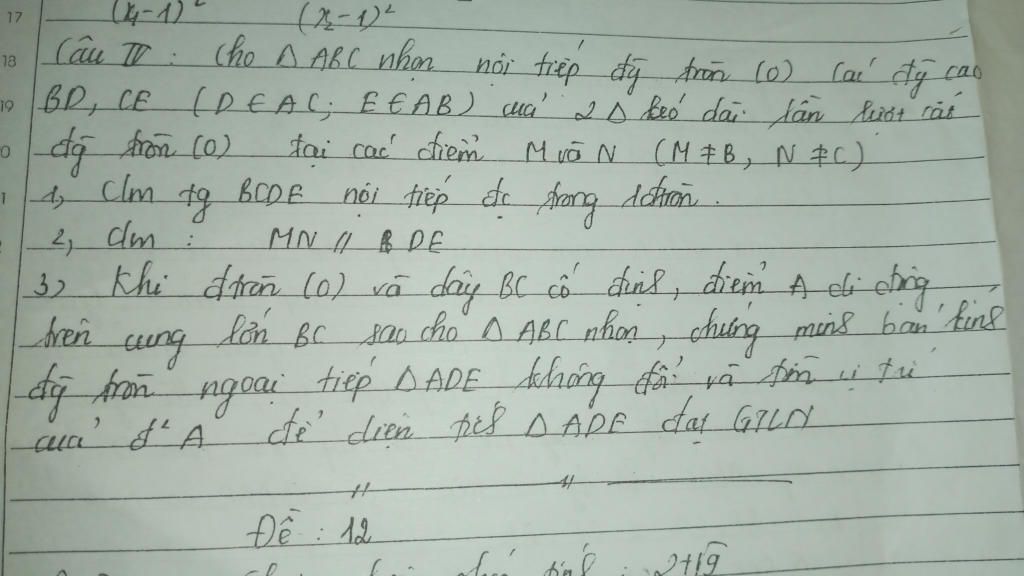 17 (x₁-1)² (x₂-1)²
18 Câu IV : Cho △ ABC nhọn nội tiếp đg̃ tròn (O) Các đg̃ cao
19 BD, CE (D ∈ AC; E ∈ AB) của 2 △ kéo dài lần lượt cắt
0 đg̃ tròn (O) tại các điểm M và N (M ≠ B, N ≠ C)
1 1, C/m tg BCDE nội tiếp đc trong 1 đtròn.
2, C/m : MN // DE
3) Khi đtròn (O) và dây BC cố định, điểm A di động
trên cung lớn BC sao cho △ ABC nhọn, chứng minh bán kính
đg̃ tròn ngoại tiếp △ ADE không đổi và tìm vị trí
của đ² A để diện tích △ ADE đạt GTLN
Đề : 12